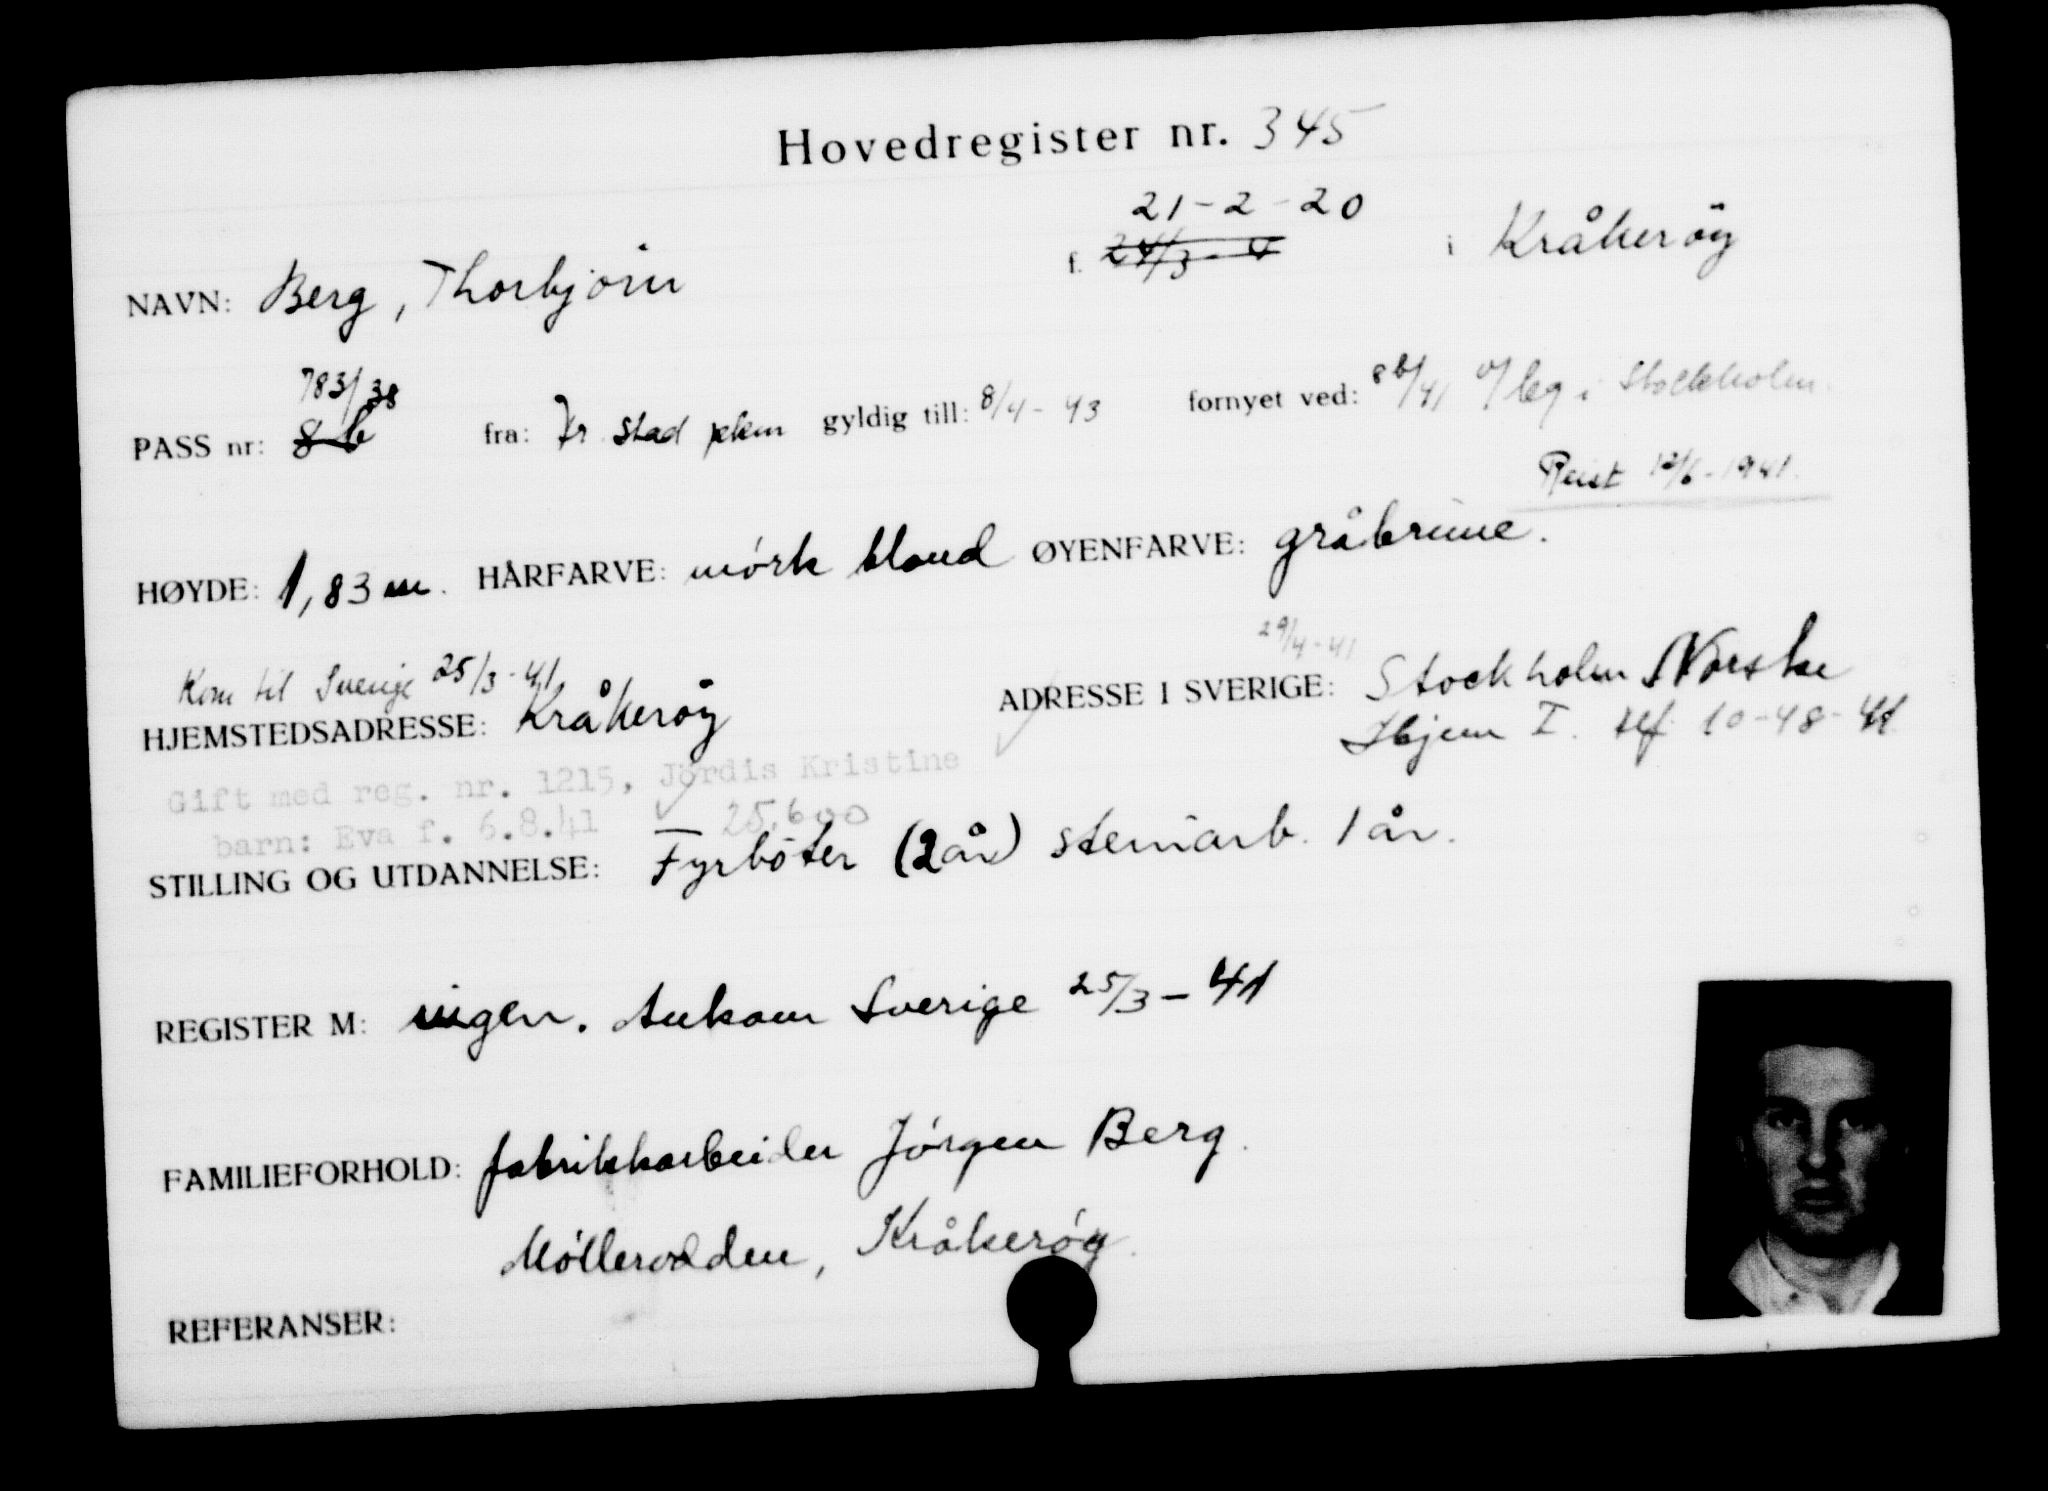 Hovedregister nr. 345
21-2-20
NAVN: Berg, Thorbjörn f. 24/3 - 4 i Kråkeröy
783/38
PASS nr: 8 b fra: Fr.stad pkm gyldig till: 8/4 - 43 fornyet ved: 8b/41 v/leg i Stockholm.
Reist 12/6-1941.
HØYDE: 1,83 m. HÅRFARVE: mörk blond ØYENFARVE: gråbrune.
Kom til Sverige 25/3-41 29/4-41
HJEMSTEDSADRESSE: Kråkeröy ADRESSE I SVERIGE: Stockholm Norske
Hjem I. tlf 10-48-41
Gift med reg. nr. 1215, Jördis Kristine
barn: Eva f. 6.8.41 25.600
STILLING OG UTDANNELSE: Fyrböter (2 år) stenarb. 1 år.
REGISTER M: ingen. Ankom Sverige 25/3-41
FAMILIEFORHOLD: fabrikkarbeider Jörgen Berg.
Möllerodden, Kråkeröy.
REFERANSER: